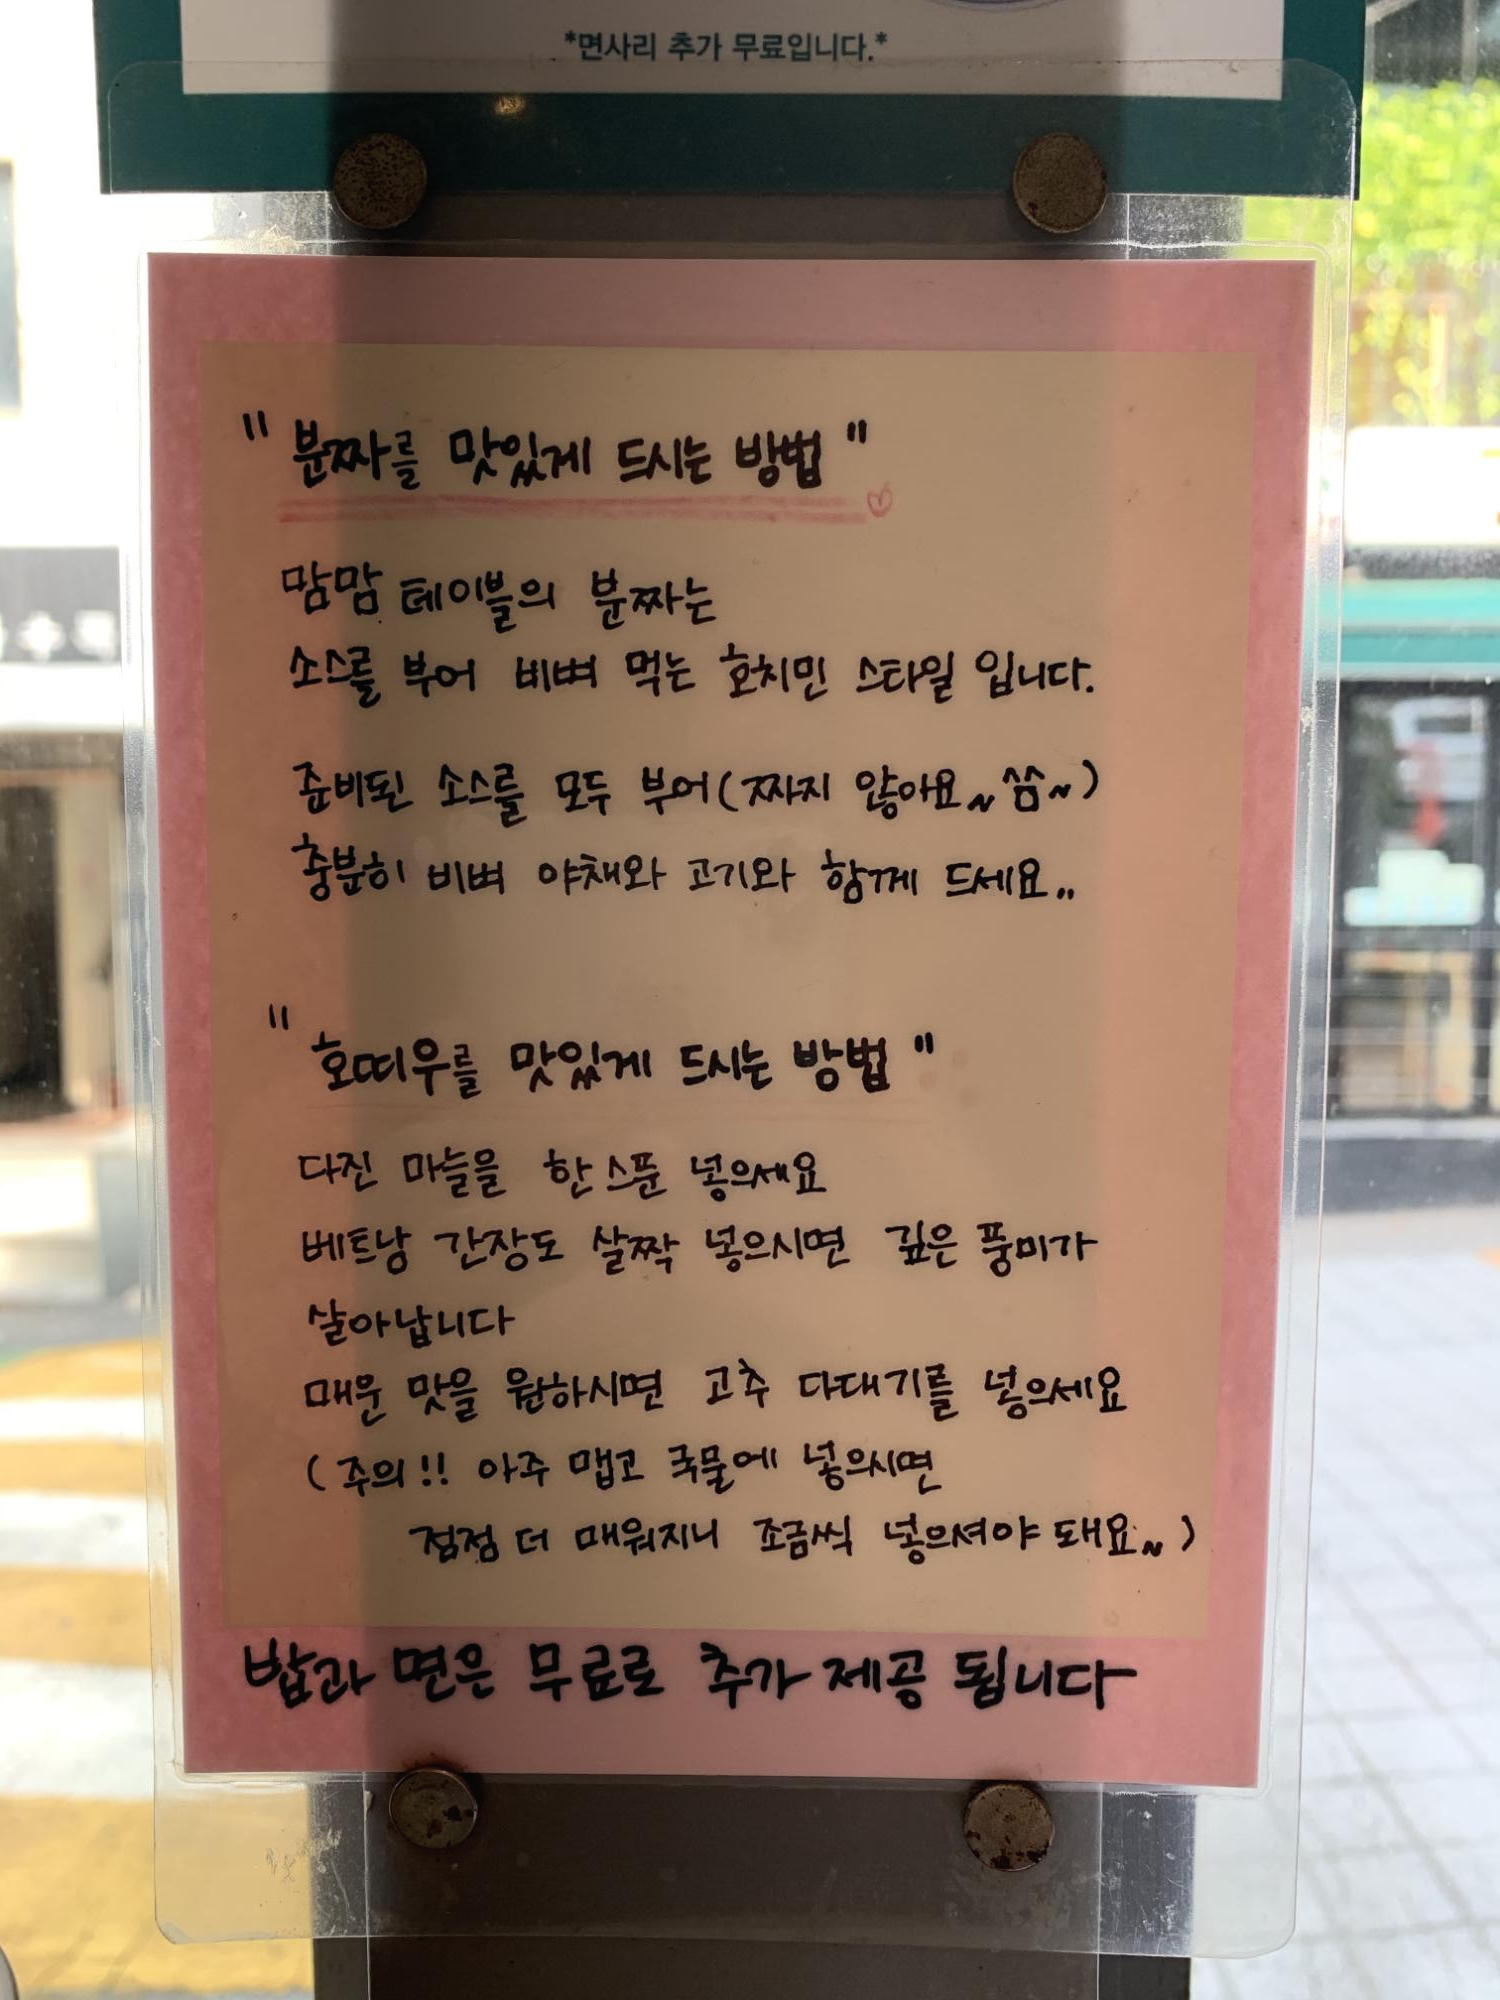 *면사리 추가 무료입니다.*
" 분짜를 맛있게 드시는 방법 "
맘맘 테이블의 분짜는
소스를 부어 비벼 먹는 호치민 스타일 입니다.
준비된 소스를 모두 부어 (짜지 않아요~ ^^~)
충분히 비벼 야채와 고기와 함께 드세요..
" 호띠우를 맛있게 드시는 방법 "
다진 마늘을 한 스푼 넣으세요
베트남 간장도 살짝 넣으시면 깊은 풍미가
살아납니다
매운 맛을 원하시면 고추 다대기를 넣으세요
( 주의!! 아주 맵고 국물에 넣으시면
점점 더 매워지니 조금씩 넣으셔야 돼요~ )
밥과 면은 무료로 추가 제공 됩니다